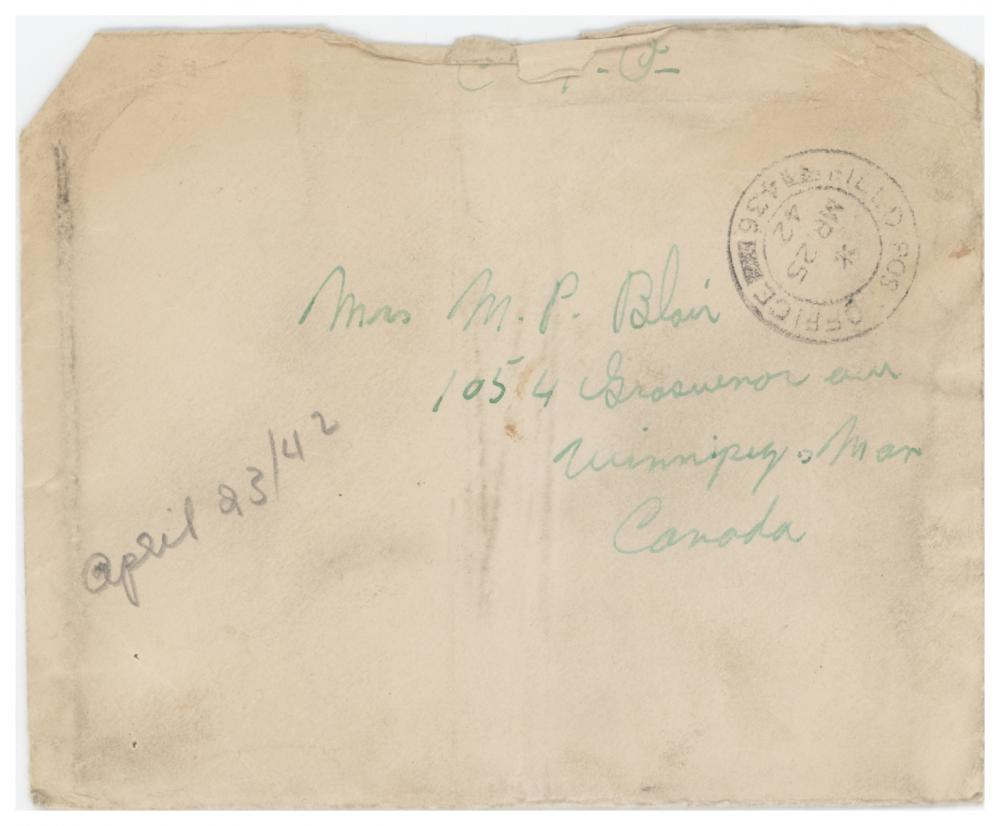 FIELD POST OFFICE
A36
*
MR 25
42
Mrs M. P. Blair
1054 Grosvenor ave
Winnipeg, Man
Canada
April 23/42